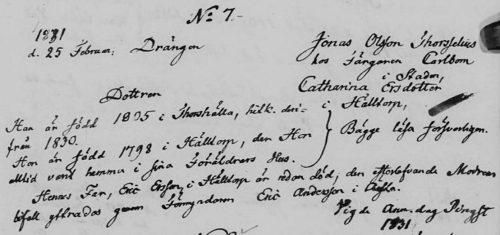 No 7.
1831
d. 25 Februar; Drängen Jonas Olsson Thorsselius
hos Färgaren Carlbom
i Staden,
Dottren Catharina Ersdotter
i Hälltorp,
Han är född 1805 i Thorshälla, hilk.
från 1830. Bägge läsa försvarligen.
Hon är född 1798 i Hälltorp, den Hon
alltid varit hemma i sina Föräldrars Hus.
Hennes Far, Eric Ersson, i Hälltorp är redan död; den efterlefvande Modrens
bifall yttrades genom Förmyndaren Eric Andersson i
Vigde Ann. dag Pingst
1831.